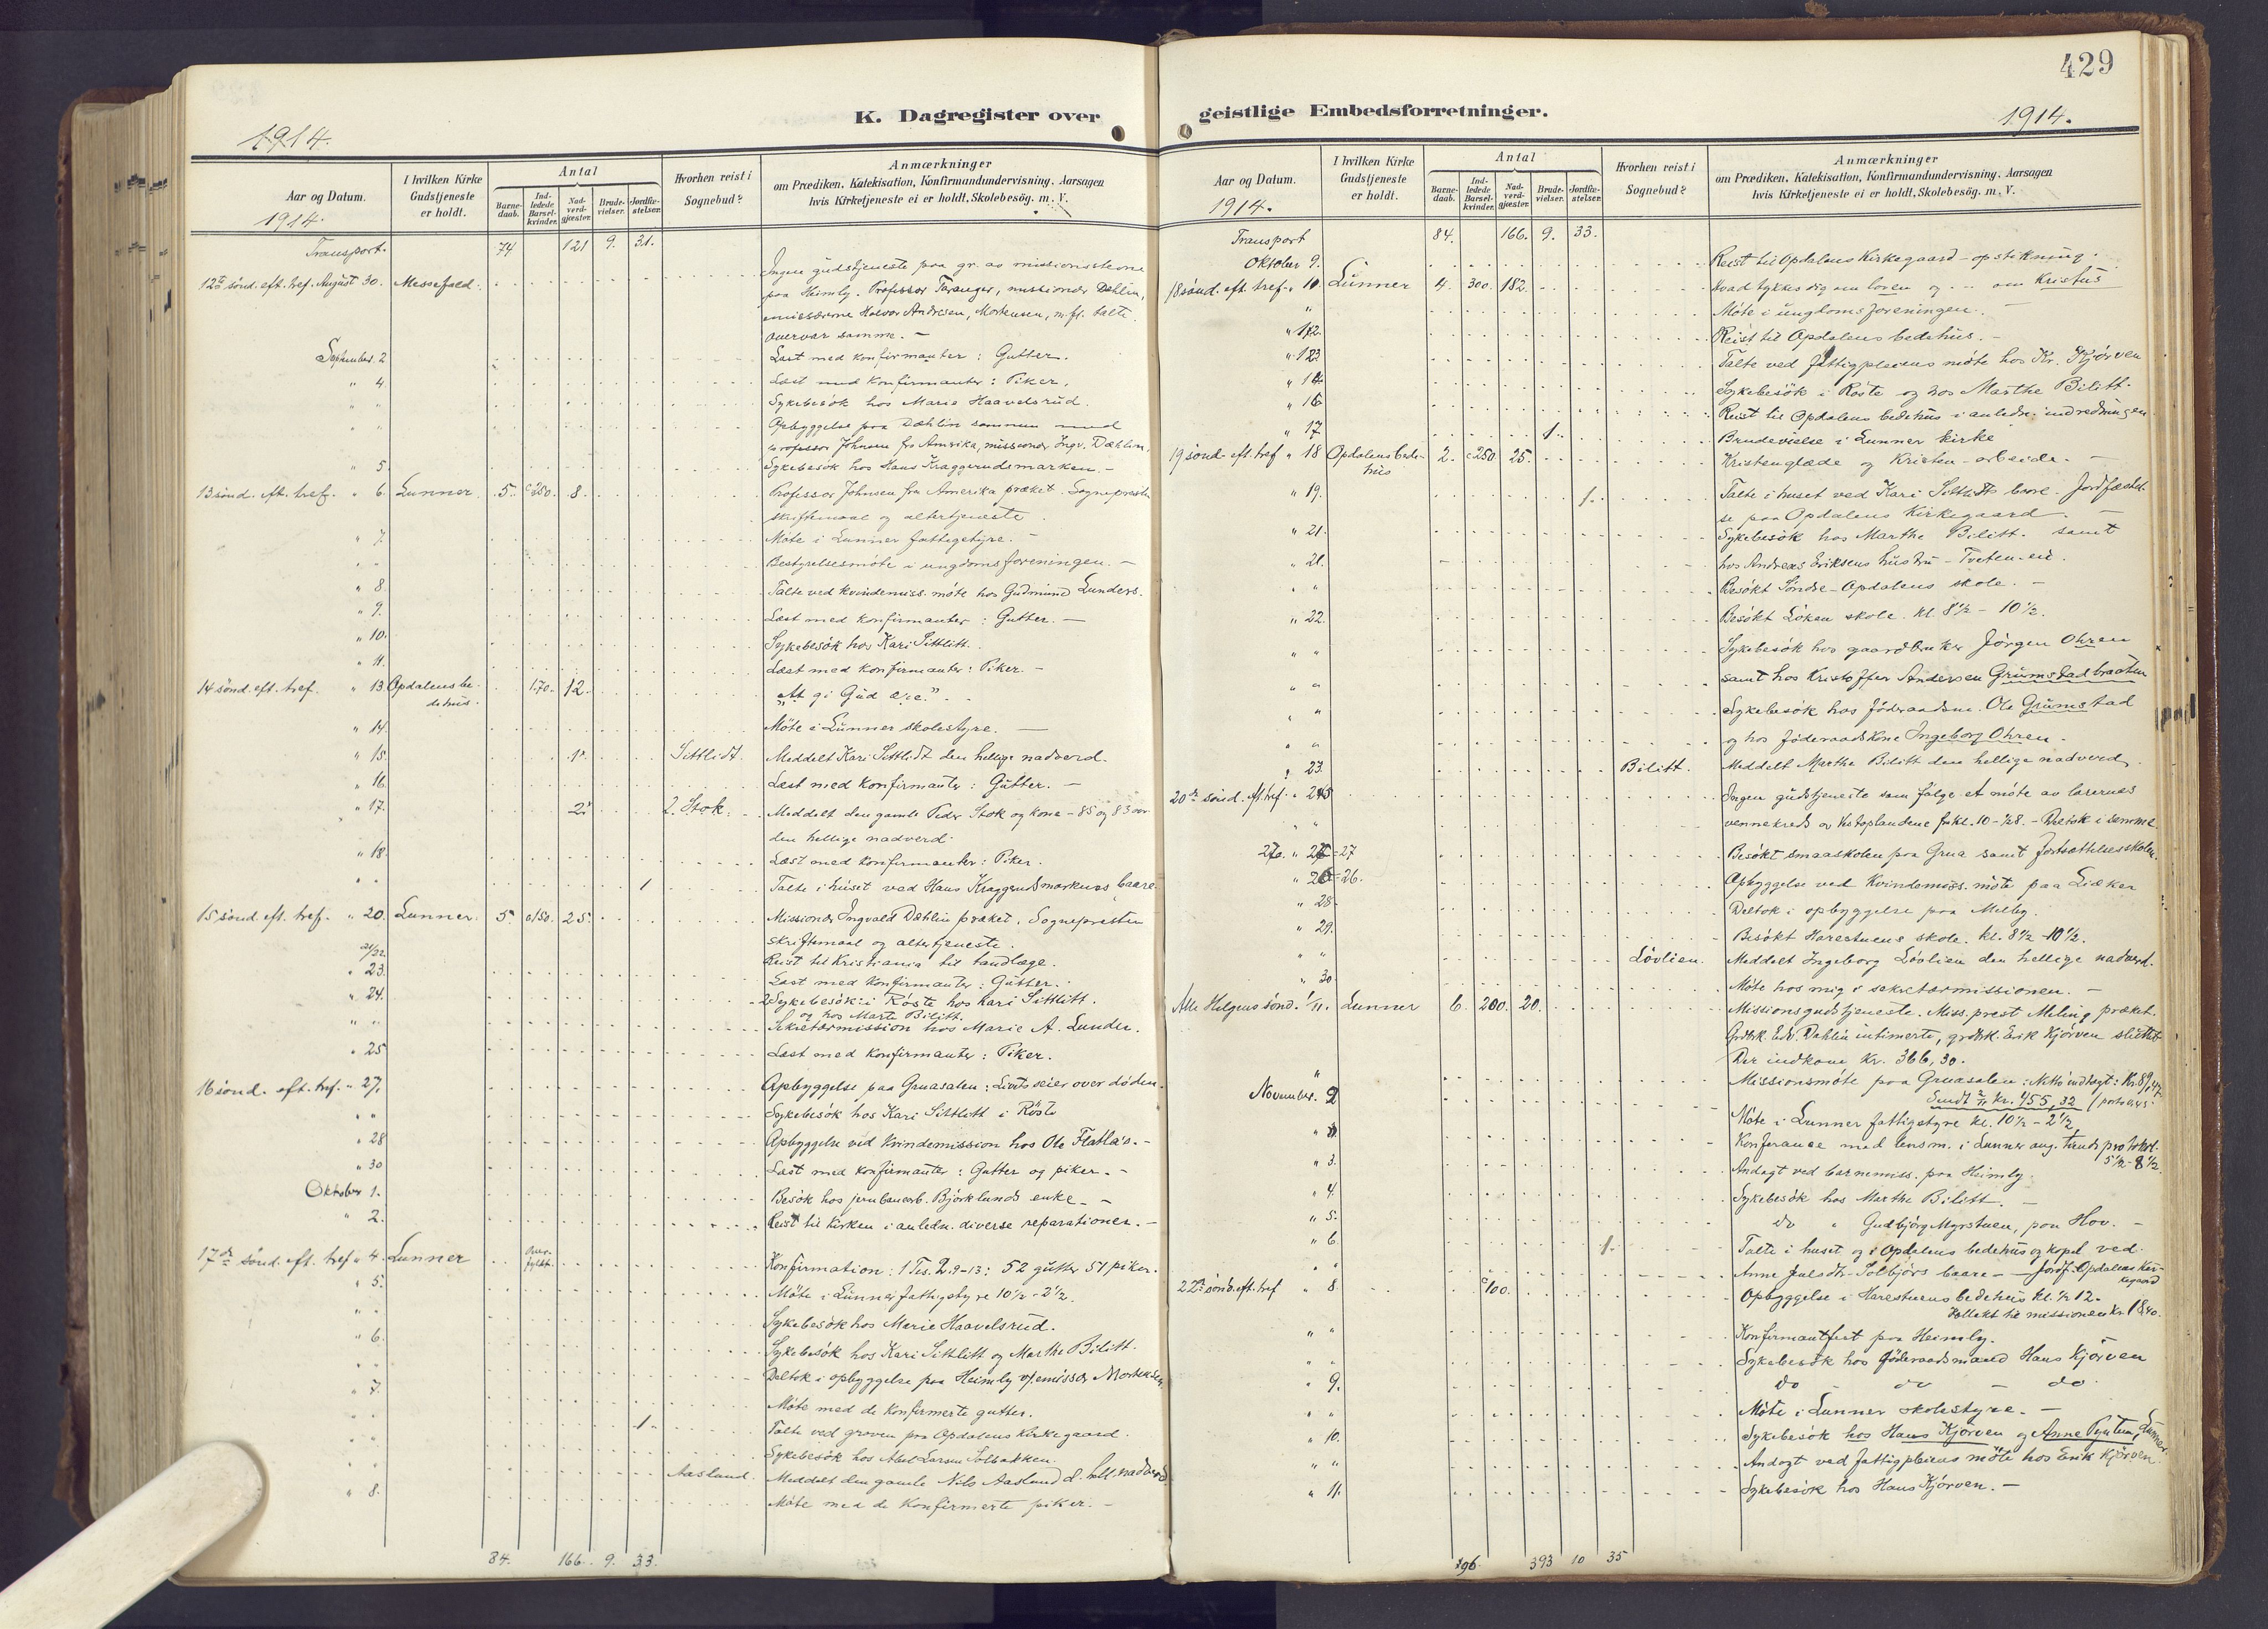 429
K. Dagregister over
geistlige Embedsforretninger.
1914.
1914.
Aar og Datum.
1914.
I hvilken Kirke Gudstjeneste er holdt.
Antal
Barne-daab.
Ind-ledede Barsel-kvinder.
Nad-verd-gjæster.
Brude-vielser.
Jordfæ-stelser.
Hvorhen reist i Sognebud?
Anmærkninger
om Prædiken, Katekisation, Konfirmandundervisning, Aarsagen
hvis Kirketjeneste ei er holdt, Skolebesög. m. V.
Transport. 74 121 9. 31.
12te sönd. eft. tref. August 30. Messefald. Ingen gudstjeneste paa gr. av missionsstevne
paa Heimly. Professor Taranger, missionær Dæhlin,
emissærerne Halvor Andresen, Mortensen, m. fl. talte.
Overvar samme. -
September 2 Læst med konfirmanter: Gutter.
" 4 Læst med konfirmanter: Piker.
" " Sykebesök hos Marie Haavelsrud.
" " Opbyggelse paa Dæhlin sammen med
professor Johnsen fra Amerika, missionær Ingv. Dæhlin.
" 5. Sykebesök hos Hans Kraggerudsmarken. -
13 sönd. eft. tref. " 6. Lunner. 5. c 250. 8. Professor Johnsen fra Amerika præket. Sogneprest
skriftemaal og altertjeneste.
" 7. Möte i Lunner fattigstyre. -
" " Bestyrelsesmöte i ungdomsforeningen. -
" 8 Talte ved kvindemiss. möte hos Gudmund Lunders.
" 9. Læst med konfirmanter: Gutter. -
" 10. Sykebesök hos Kari Sittlitt.
" 11. Læst med konfirmanter: Piker. -
14 sönd. eft. tref. " 13. Opdalens be-dehus. 170. 12. "At gi Gud ære". -
" 14. Möte i Lunner skolestyre. -
" 15. 1. Sittlidt. Meddelt Kari Sittlidt den hellige nadverd.
" 16. Læst med konfirmanter: Gutter. -
" 17. 2. 2. Stok. Meddelt den gamle Peder Stok og kone - 85 og 83 aar
den hellige nadverd.
" 18. Læst med konfirmanter: Piker.
" " 1 Talte i huset ved Hans Kraggerudsmarkens baare.
15 sönd. eft. tref. " 20. Lunner. 5. c 150. 25. Missionær Ingvald Dæhlin præket. Sognepresten
skriftemaal og altertjeneste.
21/22. Reist til Kristiania til tandlæge.
" 23. Læst med konfirmanter: Gutter.
" 24. 2 Sykebesök: i Röste hos Kari Sittlitt.
og hos Marte Bilitt.
" " Sekretærmission hos Marie A. Lunder.
" 25 Læst med konfirmanter: Piker.
16 sönd. eft. tref. " 27. Opbyggelse paa Gruasalen: Livets seier over döden.
" " Sykebesök hos Kari Sittlitt i Röste
" 28 Opbyggelse ved kvindemission hos Ole Flatla's. -
" 30 Læst med konfirmanter: Gutter og piker. -
Oktober 1. Besök hos jernbanearb. Björklunds enke. -
" 2. Reist til kirken i anledn. diverse reparationer. -
17de sönd. eft. tref. " 4. Lunner Over-fyldt. Konfirmation: 1 Tes. 2. 9-13: 52 gutter 51 piker.
" 5. Möte i Lunner fattigstyre 10½ - 2½.
" " Sykebesök hos Marie Haavelsrud.
" 6. Sykebesök hos Kari Sittlitt og Marthe Bilitt.
" " Deltok i opbyggelse paa Heimly v/ emissær Mortensen.
" 7. Möte med de konfirmerte gutter.
" " 1. Talte ved graven paa Opdalens kirkegaard.
" " Sykebesök hos Abel Larsen Solbakken.
" " Aaslund. Meddelt den gamle Nils Aaslund d. hell. nadverd.
" 8. Möte med de konfirmerte piker. -
84. 166. 9. 33.
Aar og Datum.
1914.
I hvilken Kirke Gudstjeneste er holdt.
Antal
Barne-daab.
Ind-ledede Barsel-kvinder.
Nad-verd-gjæster.
Brude-vielser.
Jordfæ-stelser.
Hvorhen reist i Sognebud?
Anmærkninger
om Prædiken, Katekisation, Konfirmandundervisning, Aarsagen
hvis Kirketjeneste ei er holdt, Skolebesög. m. V.
Transport 84. 166. 9. 33.
Oktober 9. Reist til Opdalens kirkegaard - opstikning.
18 sönd. eft. tref. " 10. Lunner 4. 300. 182. Hvad tykkes dig om loven og ... om Kristus
" Möte i ungdomsforeningen. -
" 12. Reist til Opdalens bedehus. -
" 13. Talte ved fattigpleiens möte hos Kr. Kjörven
" 14. Sykebesök i Röste og hos Marthe Bilitt.
" 16 Reist til Opdalens bedehus i anledn. indredningen
" 17 1. Brudevielse i Lunner kirke
19 sönd. eft. tref. " 18 Opdalens bede-hus 2. c 250. 25. Kristenglæde og Kristen-arbeide. -
" 19. 1. Talte i huset ved Kari Sittlidts baare. Jordfæstel-
se paa Opdalens kirkegaard. -
" 21. Sykebesök hos Marthe Bilitt. samt
" 21. hos Andreas Eriksens hustru - Tveten-eie.
" " Besökt Söndre-Opdalens skole. -
" 22. Besökt Löken skole kl. 8½ - 10½.
" " Sykebesök hos gaardbruker Jörgen Ohren
" " samt hos Kristoffer Andersen Grumstadbraaten
" " Sykebesök hos föderaadsm. Ole Grumstad
" " og hos föderaadskone Ingeborg Ohren.
" 23. Bilitt. Meddelt Marthe Bilitt den hellige nadverd.
20de sönd. eft. tref. " 25 Ingen gudstjeneste som fölge et möte av lærernes
" " vennekreds av Vestoplandene fra kl. 10 - ½8. - Deltok i samme.
" 27 Besökt smaaskolen paa Grua samt fortsættelsesskolen.
" 26. Opbyggelse ved kvindemiss. möte paa Liaker
" 28. Deltok i opbyggelse paa Melby.
" 29. Besökt Harestuens skole. kl. 8½ - 10½.
" " Lövlien. Meddelt Ingeborg Lövlien den hellige nadverd.
" 30 Möte hos mig i sekretærmissionen. -
Alle Helgens sönd. 1/11. Lunner 6. 200. 20. Missionsgudstjeneste. Miss. prest Meling præket.
Grdbk. Edv. Dæhlin intimerte, grdbk. Erik Kjörven sluttet.
Der indkom Kr. 366,30.
" Missionsmöte paa Gruasalen: Netto indtægt: Kr. 89,47.
Sendt 2/11 kr. 455,32 (porto 0,45.
November. 2 Möte i Lunner fattigstyre kl. 10½ - 2½.
" Konferanse med lensm. i Lunner ang. protokol.
5½ - 8½.
" 3. Andagt ved barnemiss. paa Heimly.
" 4. Sykebesök hos Marthe Bilitt. -
" 5. do " Gudbjörg Myrstuen, paa Hov. -
" 6. 1. Talte i huset og i Opdalens bedehus og kapel ved
" " Anne Julsdtr. Solbjörs baare - Jordf. Opdalens kir-kegaard
22de sönd. eft. tref " 8. c 100. Opbyggelse i Harestuens bedehus kl. ½ 12.
Kollekt til missionen Kr. 18,40.
" " Konfirmantfest paa Heimly.
" " Sykebesök hos föderaadsmand Hans Kjörven
" 9. do do - do.
" " Möte i Lunner skolestyre. -
" 10. Sykebesök hos Hans Kjörven og Anne Pynten, Lunner.
" " Andagt ved fattigpleiens möte hos Erik Kjörven.
" 11. Sykebesök hos Hans Kjörven. -
96. 393 10 35